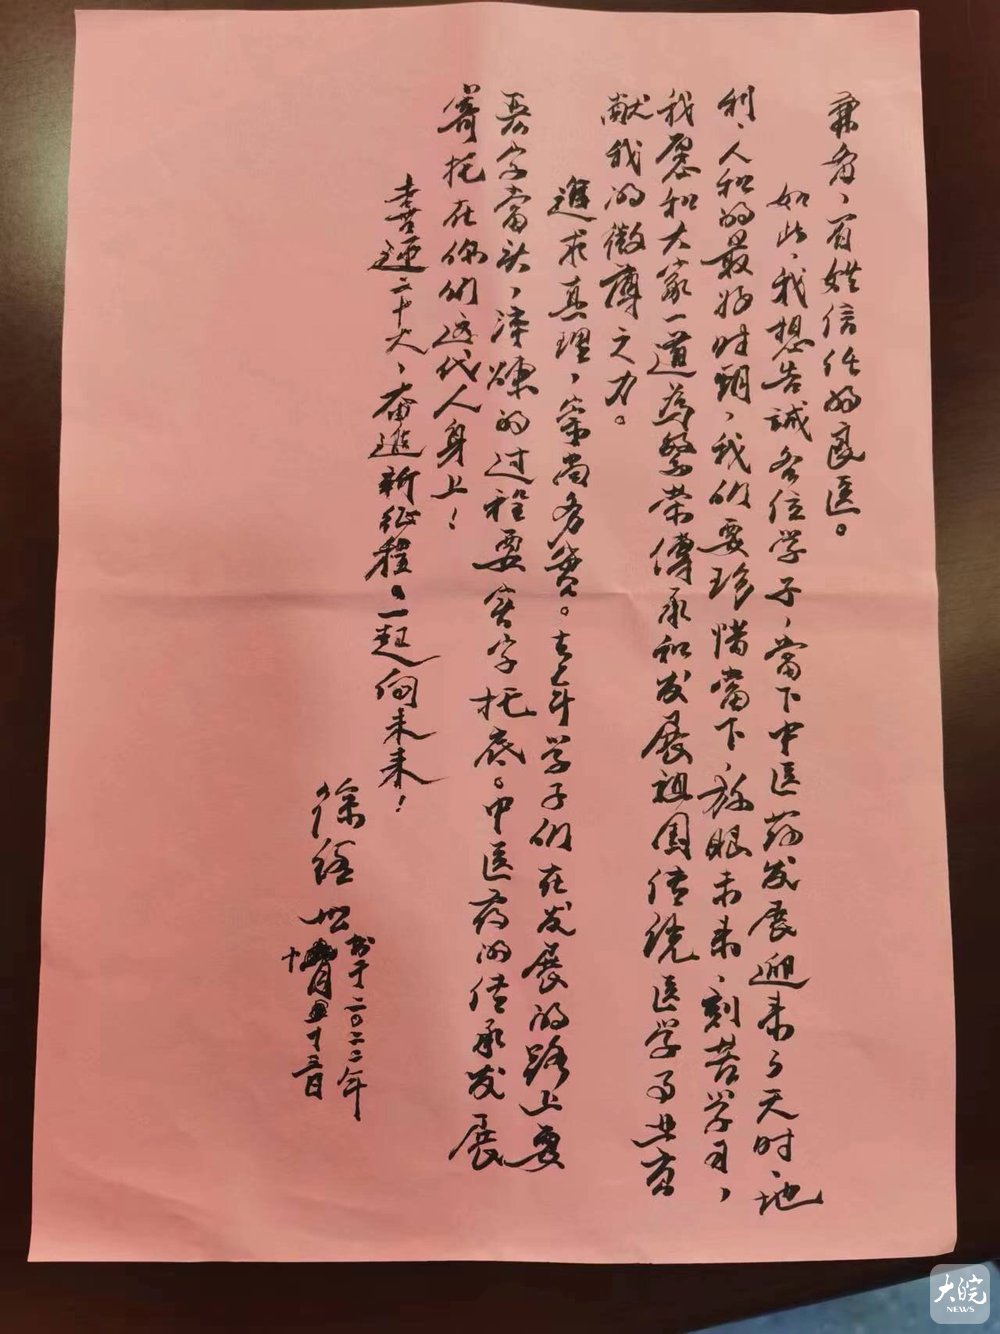 兼备，百姓信任的良医。
如此，我想告诫各位学子，當下中医药发展迎来了天时、地
利、人和的最好时期，我们要珍惜當下，放眼未来，刻苦学习，
我愿和大家一道为繁荣傳承和发展祖国传统医学事业贡
献我的微薄之力。
追求真理，崇尚务实。青年学子们在发展的路上要
字當头，淬煉的过程要实字托底。中医药的传承发展
寄托在你们这代人身上！
喜迎二十大，奋進新征程。一起向未来！
徐经世
书于二〇二二年
十月十三日
大皖
NEWS